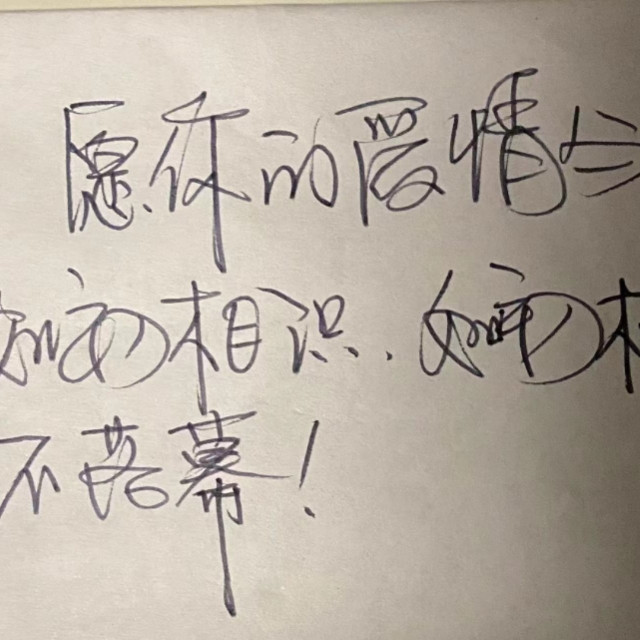 愿你的爱情
如初相识.如初相
不落幕!